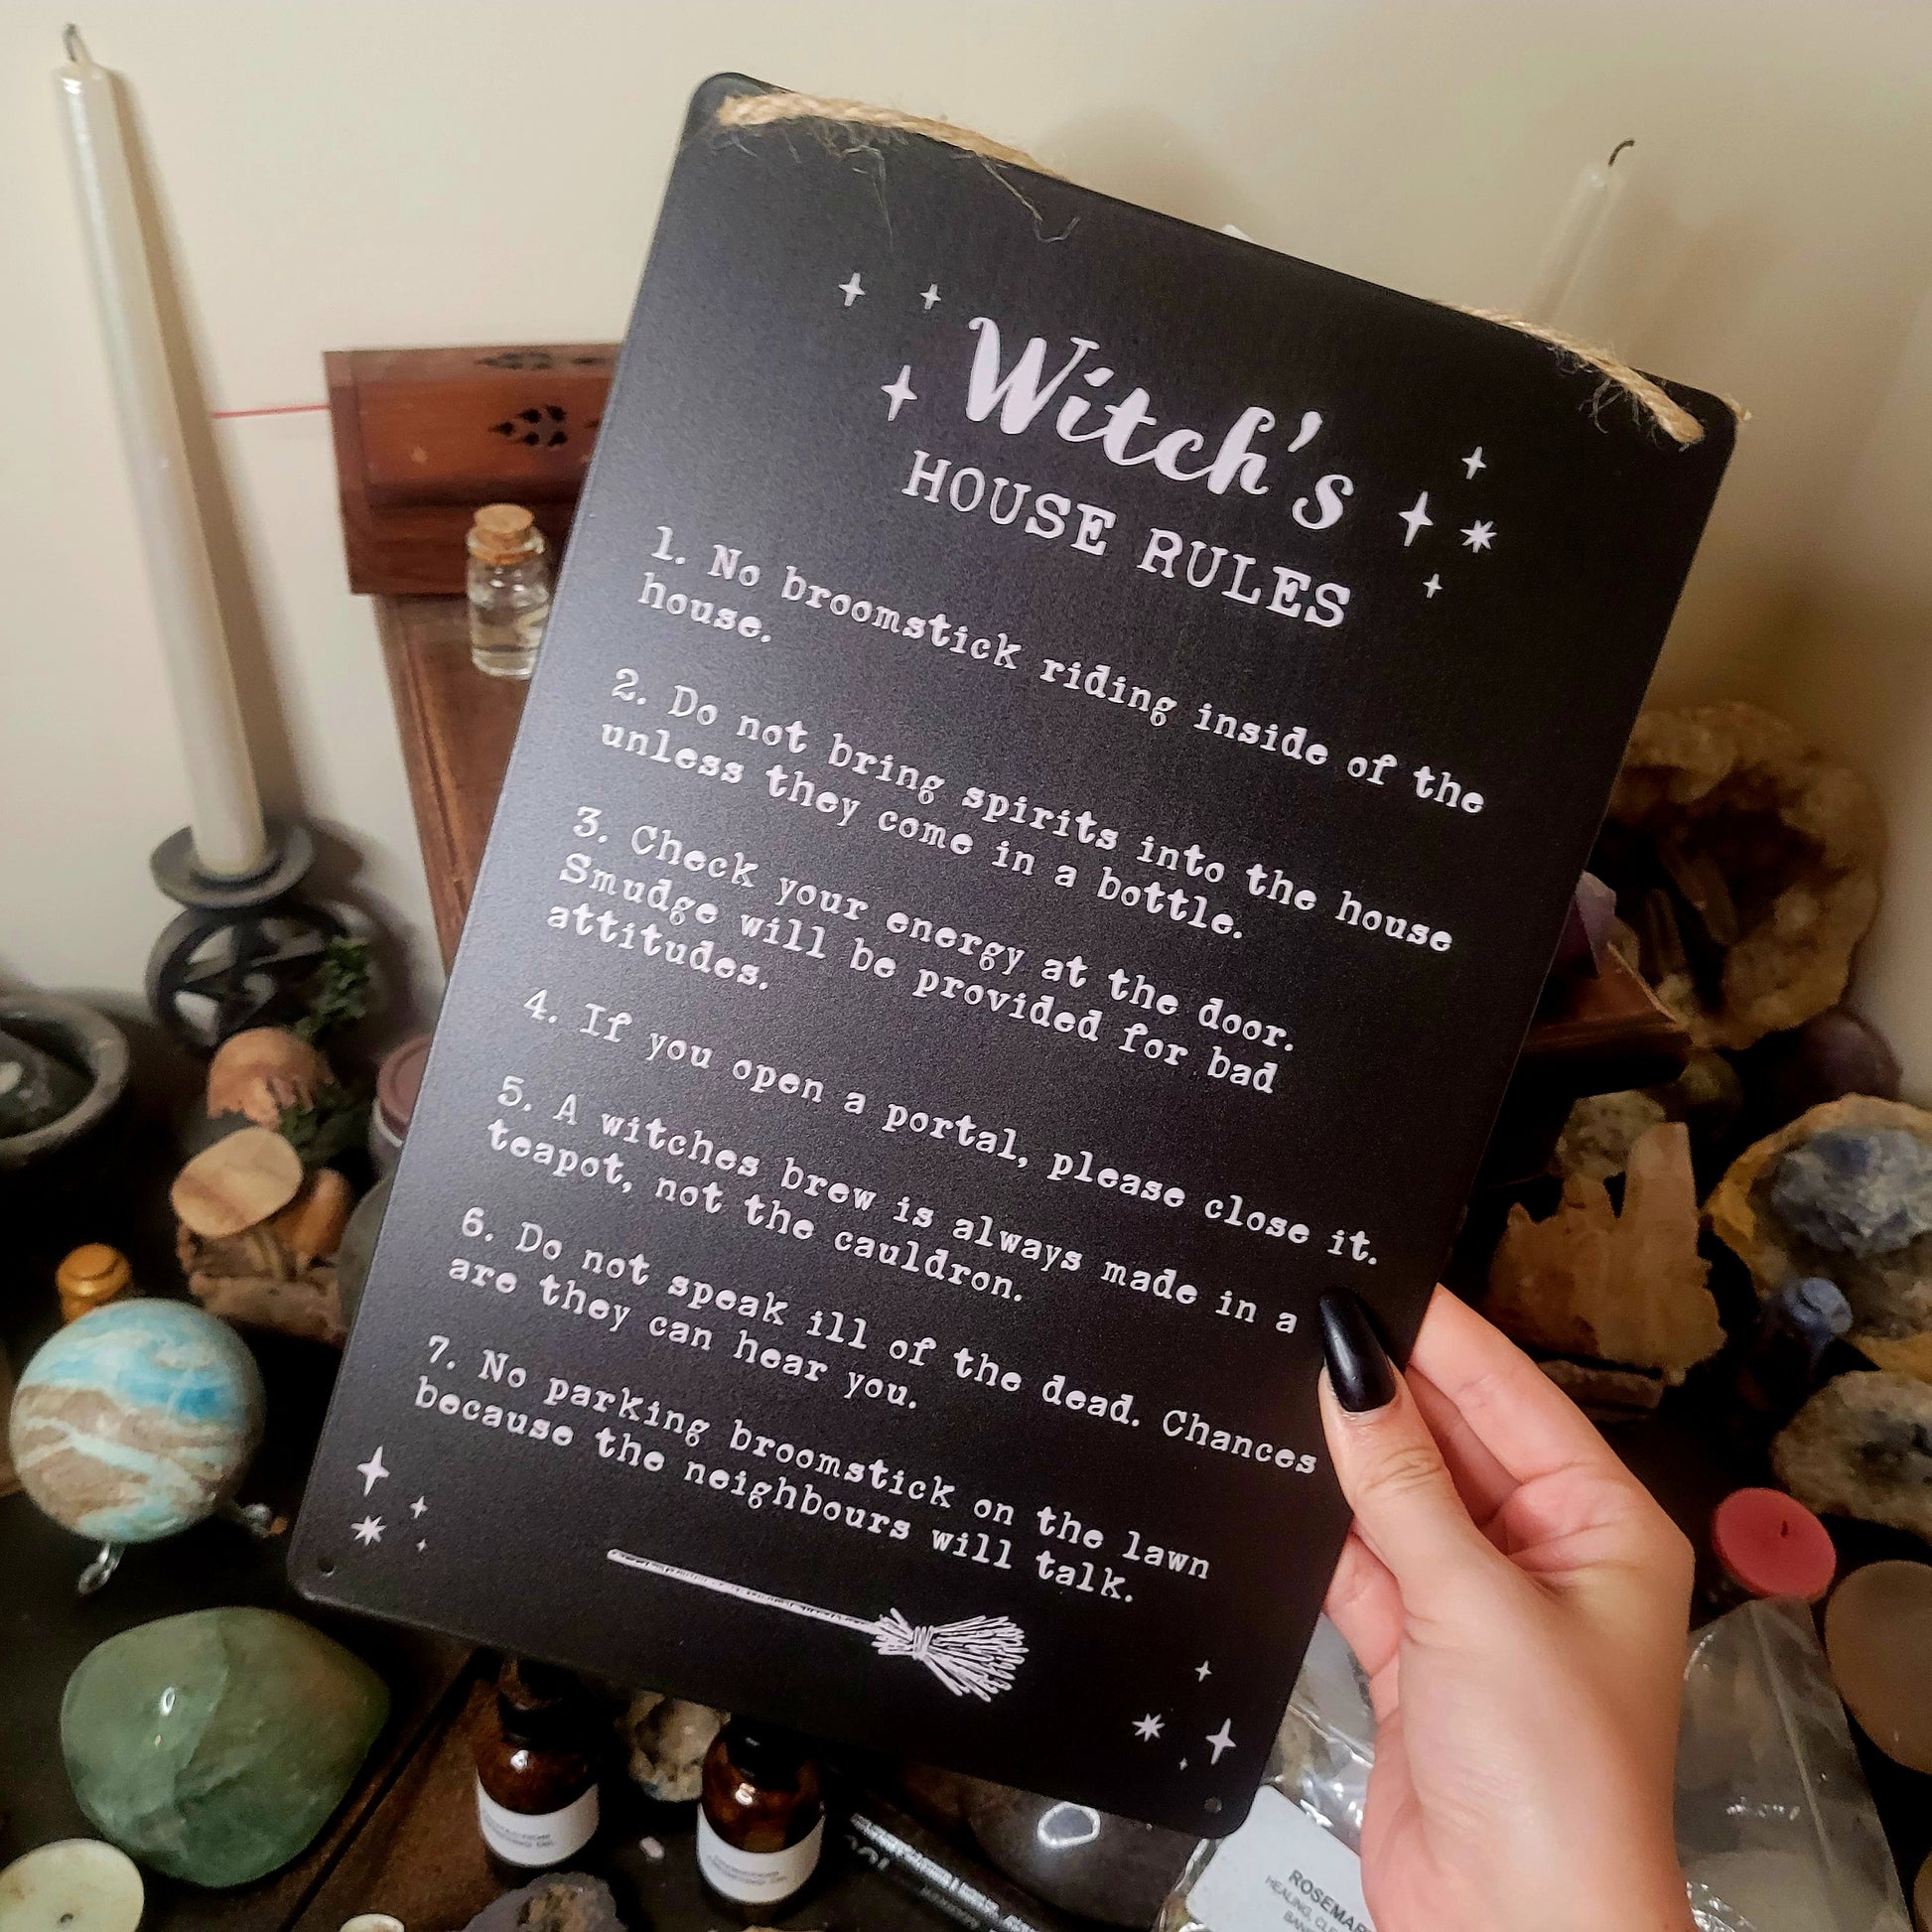 Witch's
HOUSE RULES
1. No broomstick riding inside of the
house.
2. Do not bring spirits into the house
unless they come in a bottle.
3. Check your energy at the door.
Smudge will be provided for bad
attitudes.
4. If you open a portal, please close it.
5. A witches brew is always made in a
teapot, not the cauldron.
6. Do not speak ill of the dead. Chances
are they can hear you.
7. No parking broomstick on the lawn
because the neighbours will talk.
ROSEMAR
HEALING,